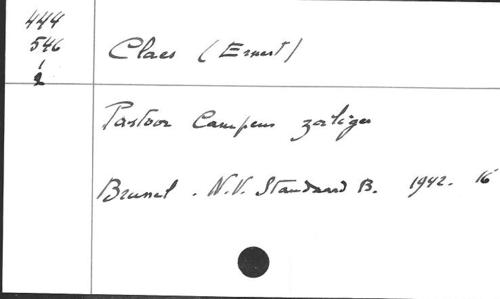 444
546
1
2
Claes (Ernest)
Pastoor Campens zaliger
Brussel . N.V. Standaard B. 1942. 16